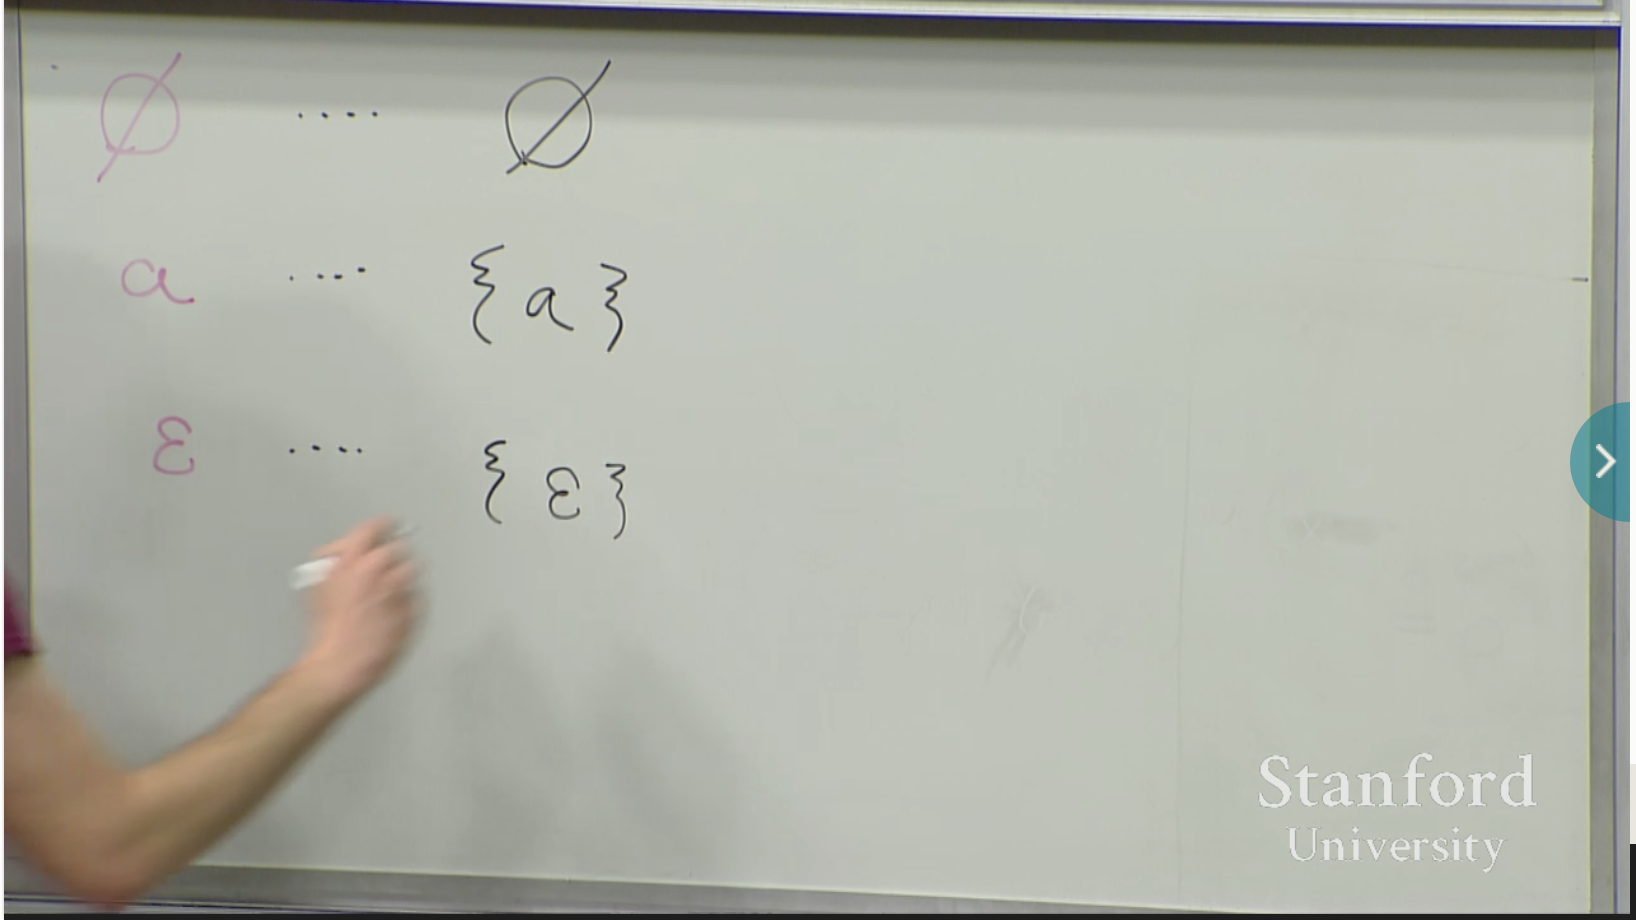 ∅ .... ∅
a .... { a }
ε .... { ε }
Stanford
University